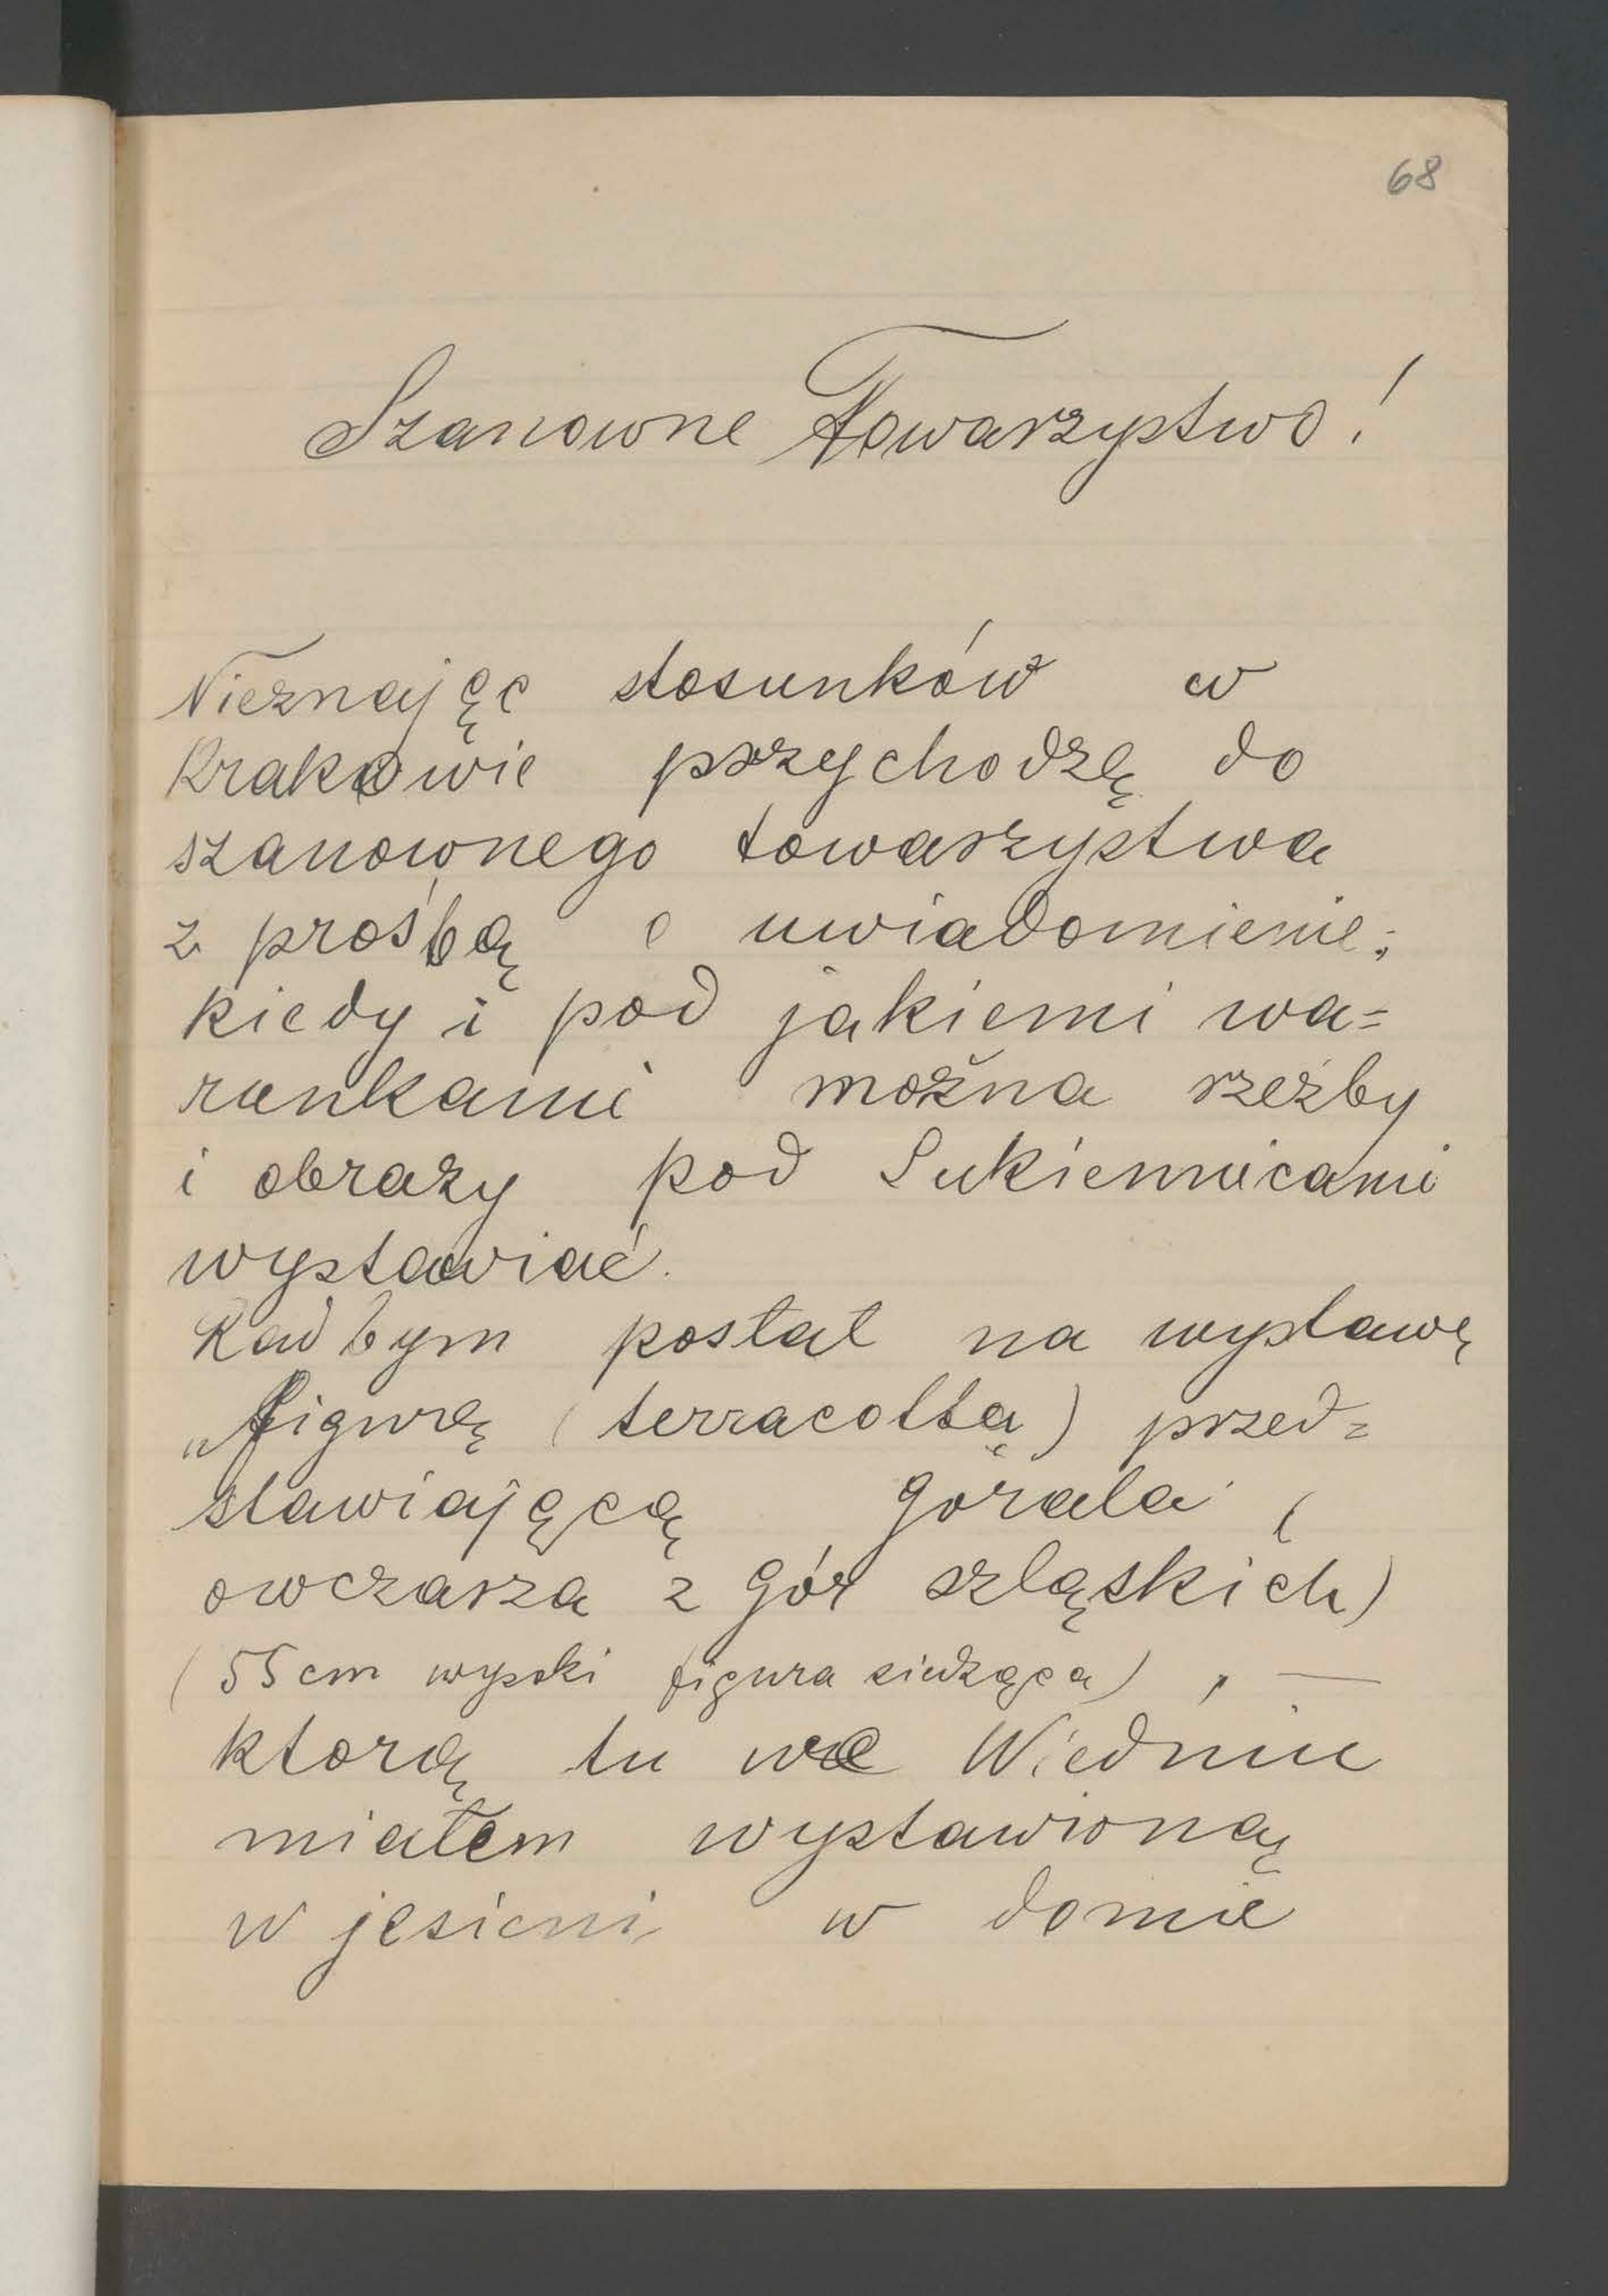 68
Szanowne Towarzystwo!
Nieznając stosunków w
Krakowie przychodzę do
szanownego towarzystwa
z prośbą o uwiadomienie:
kiedy i pod jakiemi wa=
runkami można rzeźby
i obrazy pod Sukiennicami
wystawiać.
Rad bym posłał na wystawę
„figurę (terracottą) przed=
stawiającą górala (
owczarza z gór szląskich)
(55 cm wysoki figura siedząca), —
ktorą tu we Wiedniu
miałem wystawioną
w jesieni w domie